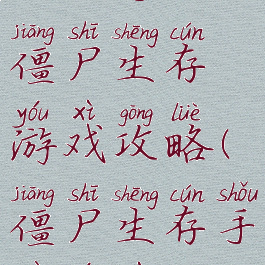 jiāng shī shēng cún
僵尸生存
yóu xì gōng lüè
游戏攻略(
jiāng shī shēng cún shǒu
僵尸生存手